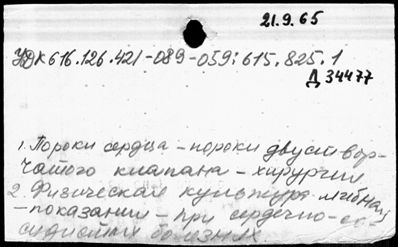 21.9.65
УДК 616.126.421-089-059:615.825.1
Д 34477
1. Пороки сердца - пороки двуствор-
чатого клапана - хирургии
2. Физическая культура
- показании - при сердечно-со-
судистых болезнях